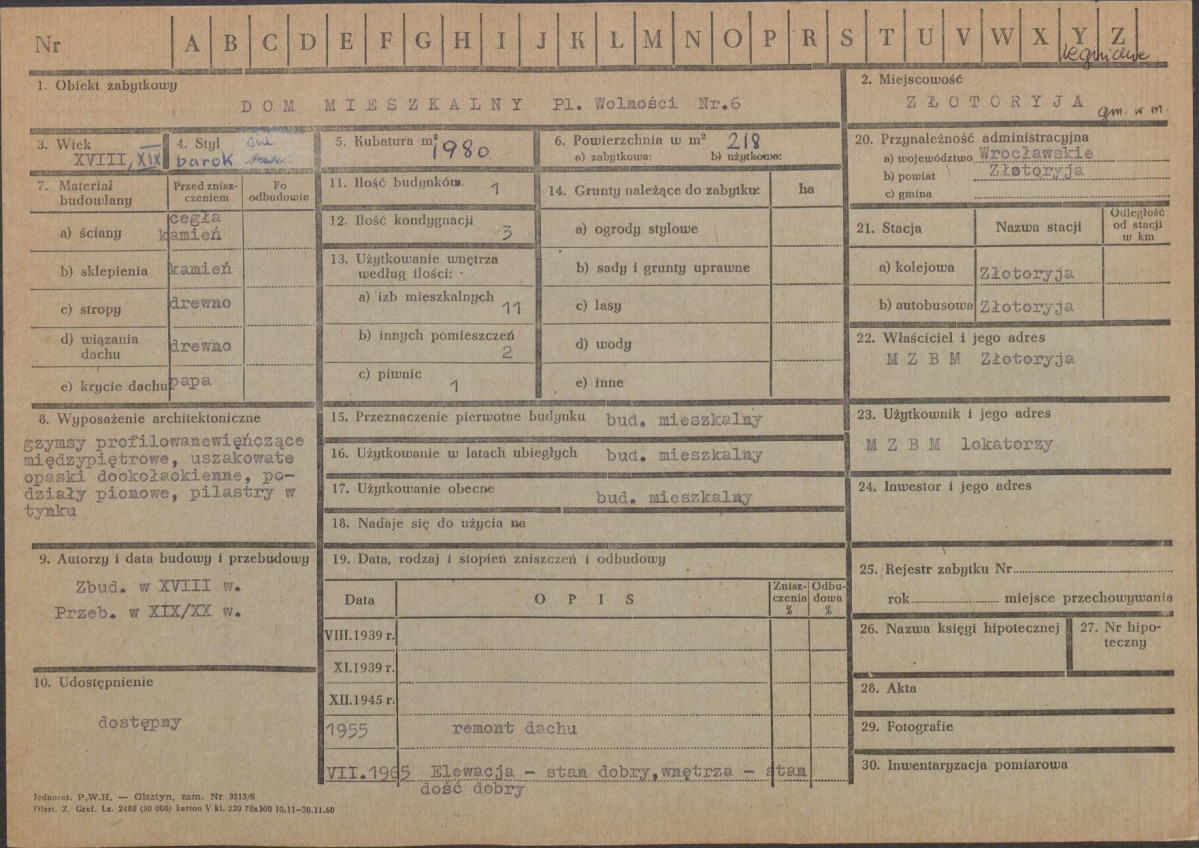 Nr A B C D E F G H I J K L M N O P R S T U V W X Y Z
legnickie
1. Obiekt zabytkowy
DOM MIESZKALNY Pl. Wolności Nr.6
2. Miejscowość
ZŁOTORYJA gm. w m.
3. Wiek
XVIII, XIX
4. Styl
barok
5. Kubatura m³
1980
6. Powierzchnia w m² 218
a) zabytkowa: b) użytkowa:
7. Materiał budowlany
Przed znisz-
czeniem
Po
odbudowie
a) ściany cegła
kamień
b) sklepienia kamień
c) stropy drewno
d) wiązania
dachu drewno
e) krycie dachu papa
8. Wyposażenie architektoniczne
gzymsy profilowanewięńczące
międzypiętrowe, uszakowate
opaski dookołaokienne, po-
działy pionowe, pilastry w
tynku
9. Autorzy i data budowy i przebudowy
Zbud. w XVIII w.
Przeb. w XIX/XX w.
10. Udostępnienie
dostępny
11. Ilość budynków 1
12. Ilość kondygnacji
3
13. Użytkowanie wnętrza
według ilości:
a) izb mieszkalnych
11
b) innych pomieszczeń
2
c) piwnic
1
14. Grunty należące do zabytku: ha
a) ogrody stylowe
b) sady i grunty uprawne
c) lasy
d) wody
e) inne
15. Przeznaczenie pierwotne budynku bud. mieszkalny
16. Użytkowanie w latach ubiegłych bud. mieszkalny
17. Użytkowanie obecne bud. mieszkalny
18. Nadaje się do użycia na
19. Data, rodzaj i stopień zniszczeń i odbudowy
Data OPIS Znisz-
czenia
%
Odbu-
dowa
%
VIII.1939 r.
XI.1939 r.
XII.1945 r.
1955 remont dachu
VII.1965 Elewacja - stan dobry,wnętrza - stan
dość dobry
20. Przynależność administracyjna
a) województwo Wrocławskie
b) powiat Złotoryja
c) gmina
21. Stacja Nazwa stacji Odległość
od stacji
w km
a) kolejowa Złotoryja
b) autobusowa Złotoryja
22. Właściciel i jego adres
M Z B M Złotoryja
23. Użytkownik i jego adres
M Z B M lokatorzy
24. Inwestor i jego adres
25. Rejestr zabytku Nr
rok miejsce przechowywania
26. Nazwa księgi hipotecznej
27. Nr hipo-
teczny
28. Akta
29. Fotografie
30. Inwentaryzacja pomiarowa
Jednocz. P.W.H. — Olsztyn, zam. Nr 3215/S
Olszt. Z. Graf. Lz. 2486 (30 000) karton V kl. 220 70x100 10.11—30.11.60